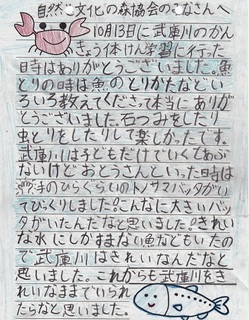 自然と文化の森協会のみなさんへ
10月13日に武庫川のかん
きょう体けん学習に行った
時はありがとうございました。魚
とりの時は魚のとりかたなどい
ろいろ教えてくださって本当にありが
とうございました。石つみをしたり
虫とりをしたりして楽しかったです。
武庫川は子どもだけでいくてあぶ
ないけどおとうさんといった時は
のひらぐらいのトノサマバッタがいて
びっくりしました。こんなに大きいバッ
タがいたんだなと思いました。きれい
な水にしかすまない魚などもいたの
で武庫川はきれいなんだなと
思いました。これからも武庫川をき
れいなままでいられ
たらなと思いました。